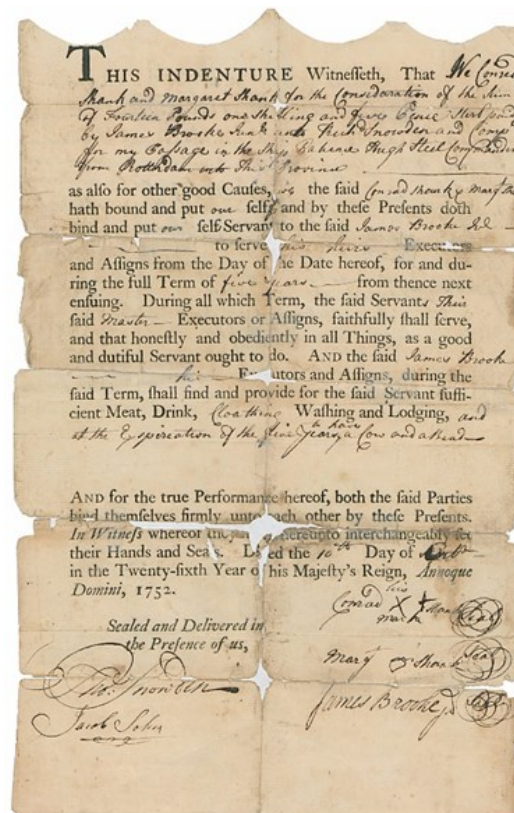 THIS INDENTURE Witnesseth, That We Conrad
Shank and Margaret Shank for the Consideration of the Sum
of Fourteen Pounds one Shilling and five Pence Sterl paid
by James Brooke Junr unto Richd Snowden and Comp
for my Passage in the Ship Hugh Steel Commander
from Rotterdam into this Province
as also for other good Causes, we the said Conrad Shank & Margt
hath bound and put our self, and by these Presents doth
bind and put our self Servant to the said James Brooke
to serve his Executors
and Assigns from the Day of the Date hereof, for and du-
ring the full Term of five years from thence next
ensuing. During all which Term, the said Servants
said Master Executors or Assigns, faithfully shall serve,
and that honestly and obediently in all Things, as a good
and dutiful Servant ought to do. AND the said James Brooke
Executors and Assigns, during the
said Term, shall find and provide for the said Servant suffi-
cient Meat, Drink, Cloathing Washing and Lodging, and
at the Expireation of the five years, to have a Cow and a
AND for the true Performance hereof, both the said Parties
bind themselves firmly unto each other by these Presents.
In Witness whereof they have hereunto interchangeably set
their Hands and Seals. Dated the 10th Day of Octr
in the Twenty-sixth Year of his Majesty's Reign, Annoque
Domini, 1752.
his
Conrad X Shank Seal
mark
Sealed and Delivered in
the Presence of us,
Margt Shank Seal
Thos: Snowden
James Brooke Jr Seal
Jacob